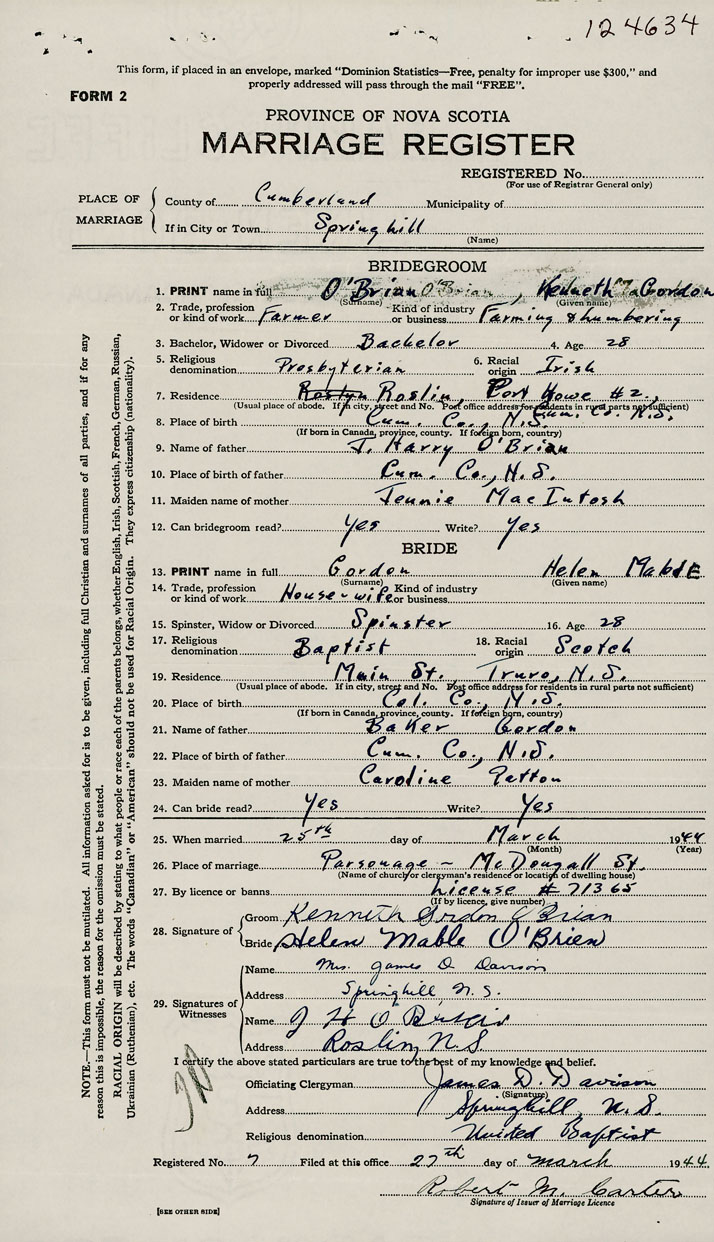 124634
This form, if placed in an envelope, marked "Dominion Statistics—Free, penalty for improper use $300," and
properly addressed will pass through the mail "FREE".
FORM 2
PROVINCE OF NOVA SCOTIA
MARRIAGE REGISTER
REGISTERED No.
(For use of Registrar General only)
PLACE OF MARRIAGE
County of Cumberland Municipality of
If in City or Town Springhill
(Name)
BRIDEGROOM
1. PRINT name in full O'Brian O'Brian, Kenneth Gordon
(Surname) (Given name)
2. Trade, profession or kind of work Farmer Kind of industry or business Farming & Lumbering
3. Bachelor, Widower or Divorced Bachelor 4. Age 28
5. Religious denomination Presbyterian 6. Racial origin Irish
7. Residence Roslyn Roslin, Port Howe #2, Cum. Co. N.S.
(Usual place of abode. If in city, street and No. Post office address for residents in rural parts not sufficient)
8. Place of birth Cum. Co., N.S.
(If born in Canada, province, county. If foreign born, country)
9. Name of father J. Harry O'Brian
10. Place of birth of father Cum. Co., N.S.
11. Maiden name of mother Jennie MacIntosh
12. Can bridegroom read? Yes Write? Yes
BRIDE
13. PRINT name in full Gordon Helen Mable
(Surname) (Given name)
14. Trade, profession or kind of work House-wife Kind of industry or business
15. Spinster, Widow or Divorced Spinster 16. Age 28
17. Religious denomination Baptist 18. Racial origin Scotch
19. Residence Main St. Truro, N.S.
(Usual place of abode. If in city, street and No. Post office address for residents in rural parts not sufficient)
20. Place of birth Col. Co., N.S.
(If born in Canada, province, county. If foreign born, country)
21. Name of father Baker Gordon
22. Place of birth of father Cum. Co., N.S.
23. Maiden name of mother Caroline Patton
24. Can bride read? Yes Write? Yes
25. When married 25th day of March 1944
(Month) (Year)
26. Place of marriage Parsonage - McDougall St.
(Name of church or clergyman's residence or location of dwelling house)
27. By licence or banns License # 71365
(If by licence, give number)
28. Signature of
Groom Kenneth Gordon O'Brian
Bride Helen Mable O'Brien
29. Signatures of Witnesses
Name Mrs. James D. Davison
Address Springhill N.S.
Name J H O'Brian
Address Roslin, N.S.
I certify the above stated particulars are true to the best of my knowledge and belief.
Officiating Clergyman James D. Davison
(Signature)
Address Springhill, N.S.
Religious denomination United Baptist
Registered No. 7 Filed at this office 27th day of March 1944
Robert M. Carter
Signature of Issuer of Marriage Licence
[SEE OTHER SIDE]
NOTE.—This form must not be mutilated. All information asked for is to be given, including full Christian and surnames of all parties, and if for any
reason this is impossible, the reason for the omission must be stated.
RACIAL ORIGIN will be described by stating to what people or race each of the parents belongs, whether English, Irish, Scottish, French, German, Russian,
Ukrainian (Ruthenian), etc. The words "Canadian" or "American" should not be used for Racial Origin. They express citizenship (nationality).